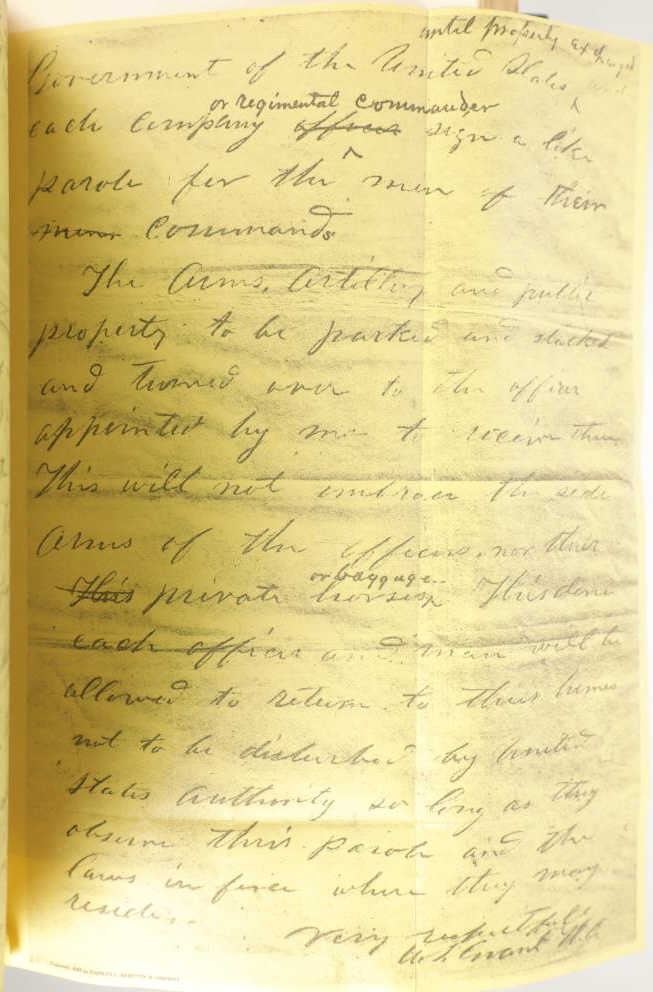 until properly exchanged
Government of the United States and
or regimental commander
each company officer sign a like
parole for the men of their
commands
The Arms, Artillery and public
property to be parked and stacked
and turned over to the officer
appointed by me to receive them
This will not embrace the side
Arms of the officers, nor their
or baggage.
This private horses This done
each officer and man will be
allowed to return to their homes
not to be disturbed by United
States authority so long as they
observe their parole and the
laws in force where they may
reside.
Very respectfully
U.S. Grant Lt. G